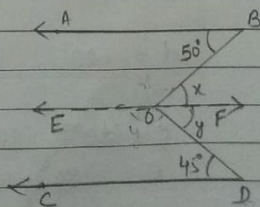 A B
50°
x
E O F
y
45°
C D